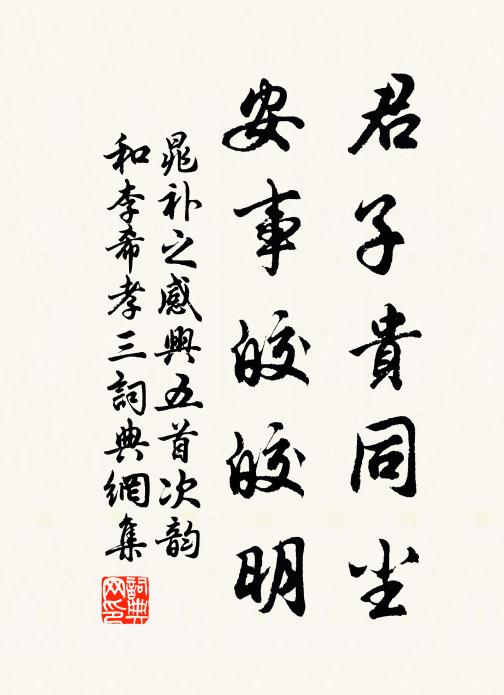 君子貴同尘
安事皎皎明
晁补之感興五首次韵
和李希孝三詞典網集
詞典
网印